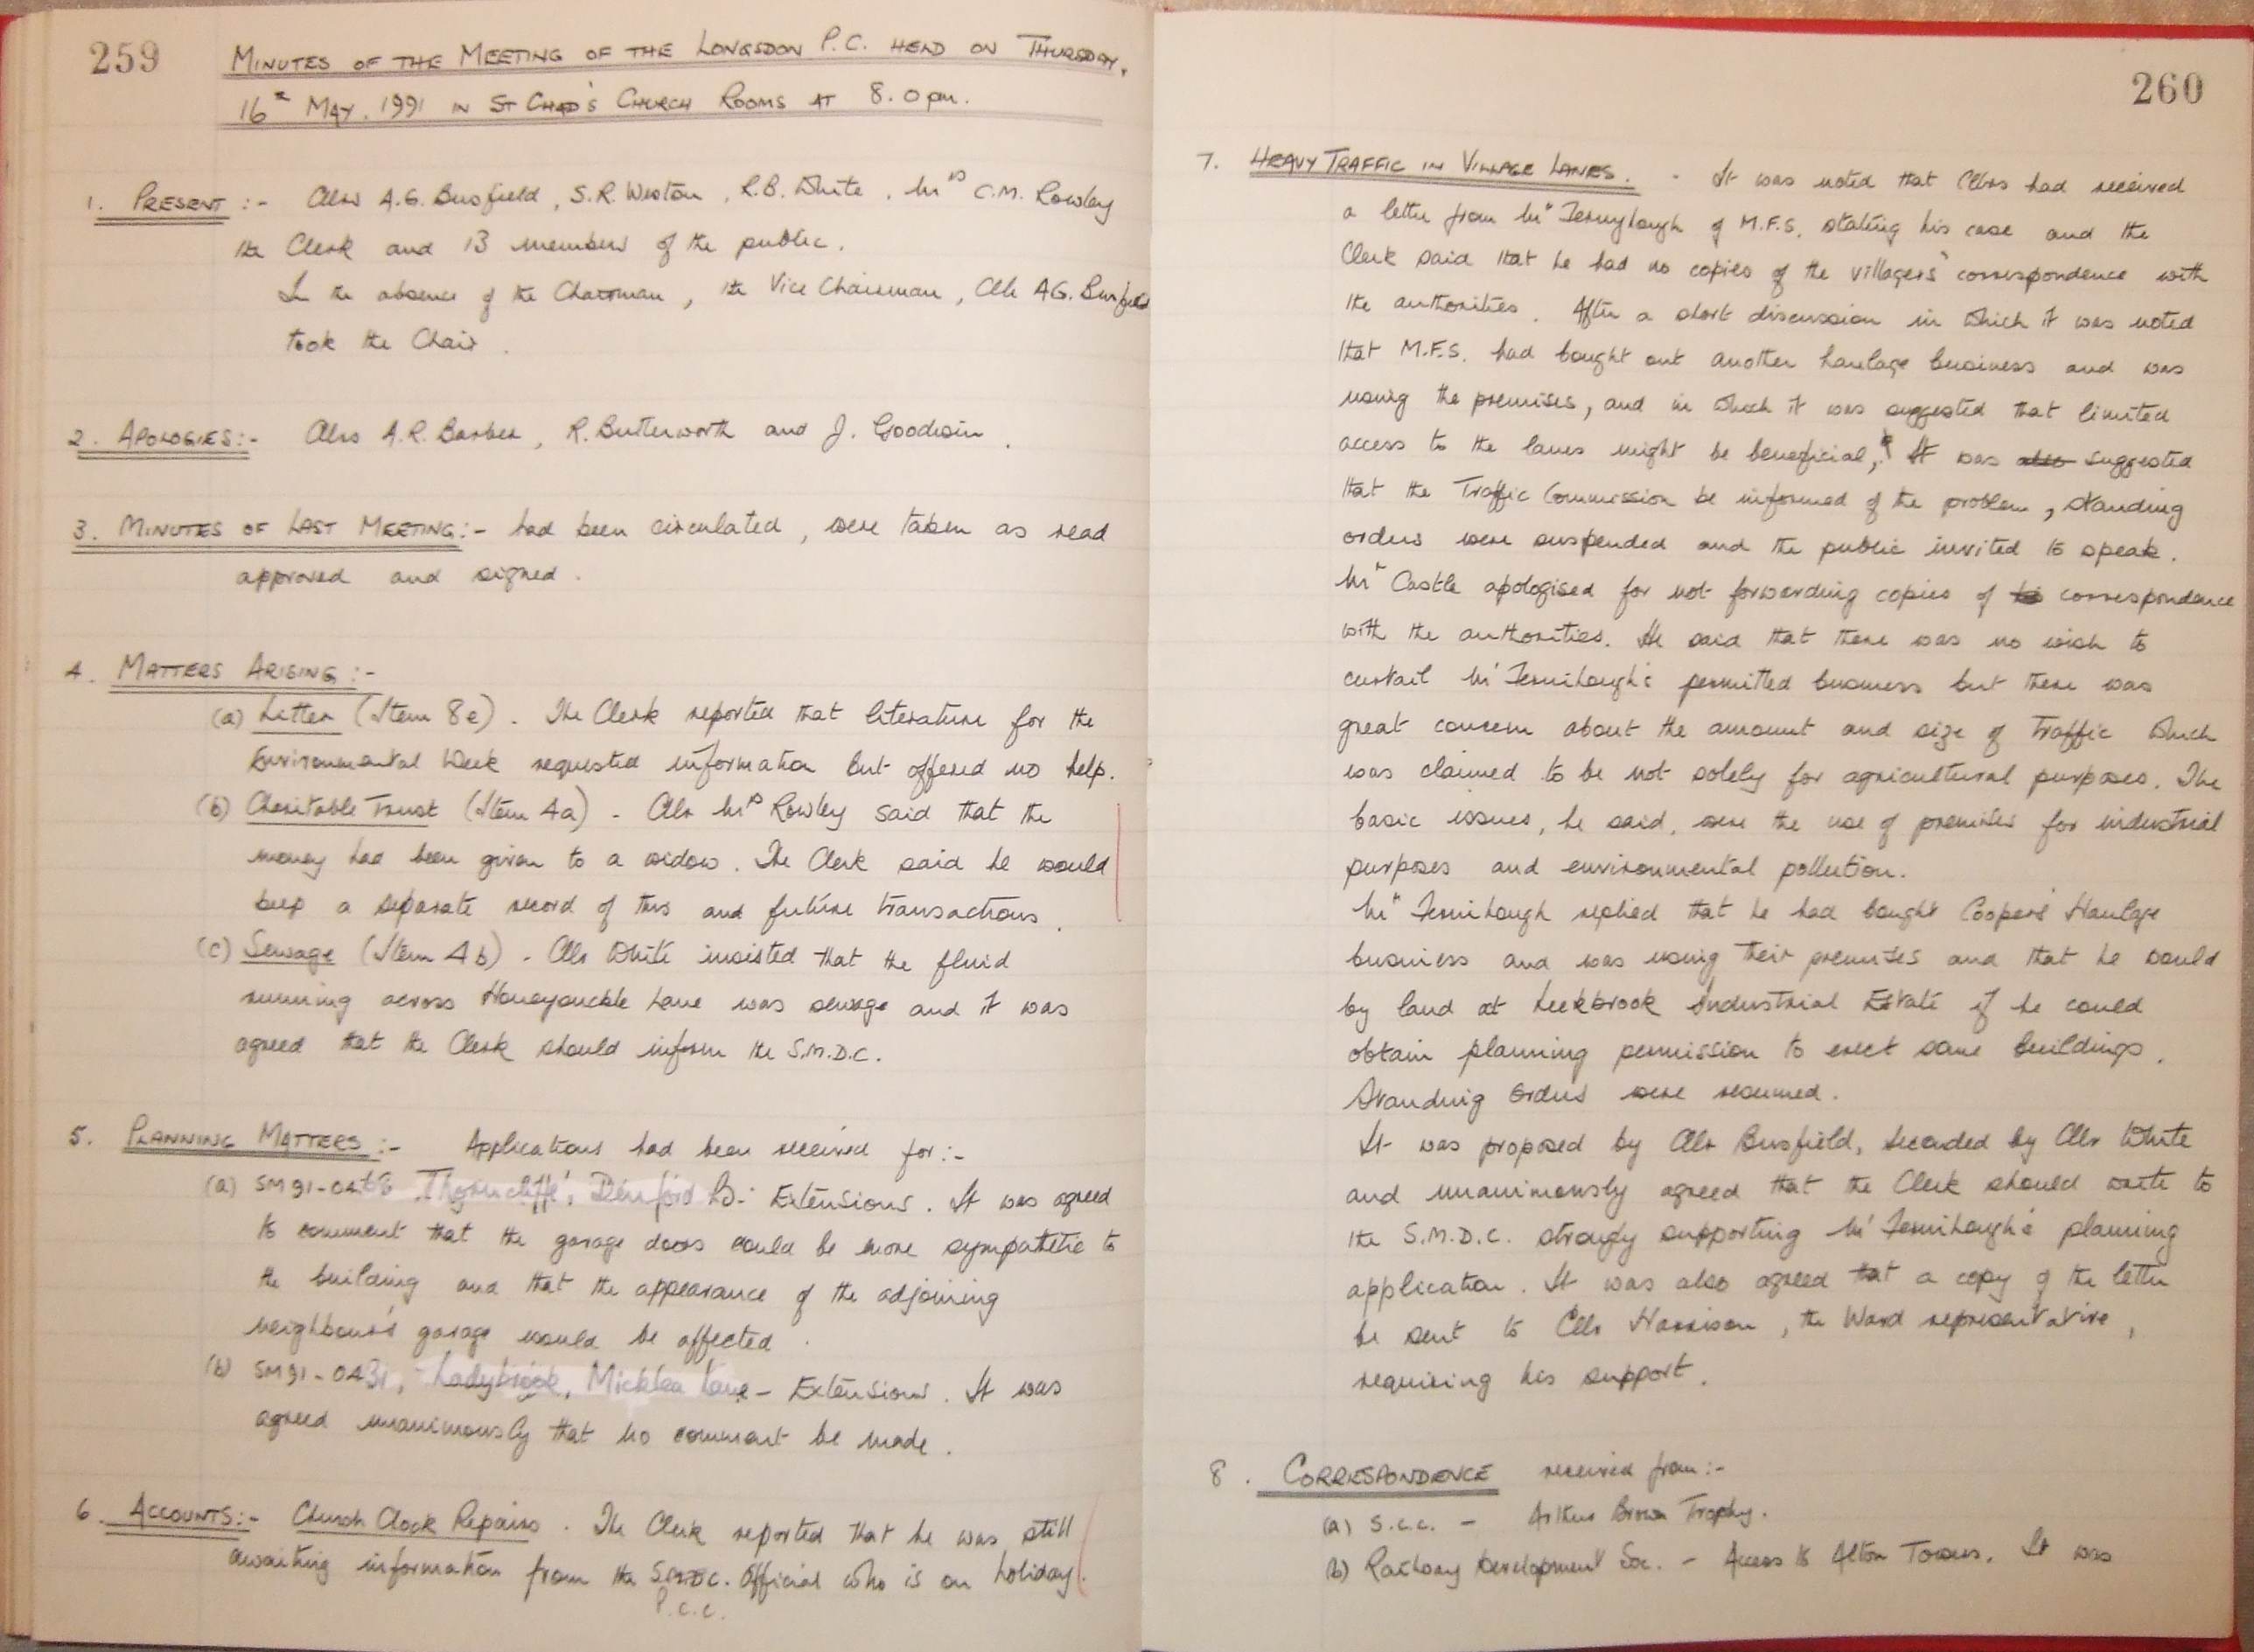 259
MINUTES OF THE MEETING OF THE LONGSDON P.C. HELD ON THURSDAY,
16th MAY. 1991 IN ST CHAD'S CHURCH ROOMS AT 8.0 pm.
1. PRESENT :- Cllrs A.G. Busfield, S.R. Weston, R.B. White, Mrs C.M. Rowley
the Clerk and 13 members of the public.
In the absence of the Chairman, the Vice Chairman, Cllr A.G. Busfield
took the Chair.
2. APOLOGIES:- Cllrs A.R. Barber, R. Butterworth and J. Goodwin.
3. MINUTES OF LAST MEETING:- had been circulated, were taken as read
approved and signed.
4. MATTERS ARISING :-
(a) Letter (Item 8e). The Clerk reported that literature for the
Environmental Week requested information but offered no help.
(b) Charitable Trust (Item 4a) - Cllr Mrs Rowley said that the
money had been given to a widow. The Clerk said he would
keep a separate record of this and future transactions.
(c) Sewage (Item 4b) - Cllr White insisted that the fluid
running across Honeysuckle Lane was sewage and it was
agreed that the Clerk should inform the S.M.D.C.
5. PLANNING MATTERS :- Applications had been received for:-
(a) SM91- 'Thorncliffe', Denford Extensions. It was agreed
to comment that the garage doors could be more sympathetic to
the building and that the appearance of the adjoining
neighbour's garage would be affected.
(b) SM91-0431, Ladybrook, Micklea Lane - Extensions. It was
agreed unanimously that no comment be made.
6. ACCOUNTS:- Church Clock Repairs. The Clerk reported that he was still
awaiting information from the S.M.D.C. Official who is on holiday.
P.C.C.
260
7. HEAVY TRAFFIC IN VILLAGE LANES. - It was noted that Cllrs had received
a letter from Mr Fernyhough of M.F.S. stating his case and the
Clerk said that he had no copies of the villagers' correspondence with
the authorities. After a short discussion in which it was noted
that M.F.S. had bought out another haulage business and was
using the premises, and in which it was suggested that limited
access to the lanes might be beneficial, It was also suggested
that the Traffic Commission be informed of the problem, standing
orders were suspended and the public invited to speak.
Mr Castle apologised for not forwarding copies of correspondence
with the authorities. He said that there was no wish to
curtail Mr Fernihough's permitted business but there was
great concern about the amount and size of traffic which
was claimed to be not solely for agricultural purposes. The
basic issues, he said, were the use of premises for industrial
purposes and environmental pollution.
Mr Fernihough replied that he had bought Cooper's Haulage
business and was using their premises and that he would
by land at Leekbrook Industrial Estate if he could
obtain planning permission to erect some buildings.
Standing Orders were resumed.
It was proposed by Cllr Busfield, seconded by Cllr White
and unanimously agreed that the Clerk should write to
the S.M.D.C. strongly supporting Mr Fernihough's planning
application. It was also agreed that a copy of the letter
be sent to Cllr Harrison, the Ward representative,
requiring his support.
8. CORRESPONDENCE received from:-
(a) S.C.C. - Arthur Brown Trophy.
(b) Railway Development Soc. - Access to Alton Towers. It was